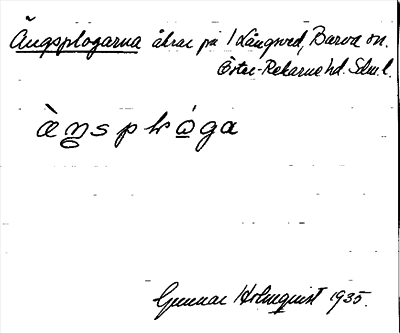 Ängsplogarna åkrar på 1 Långved, Barva sn.
Öster-Rekarne hd. Sdm. l.
Gunnar Holmquist 1935.